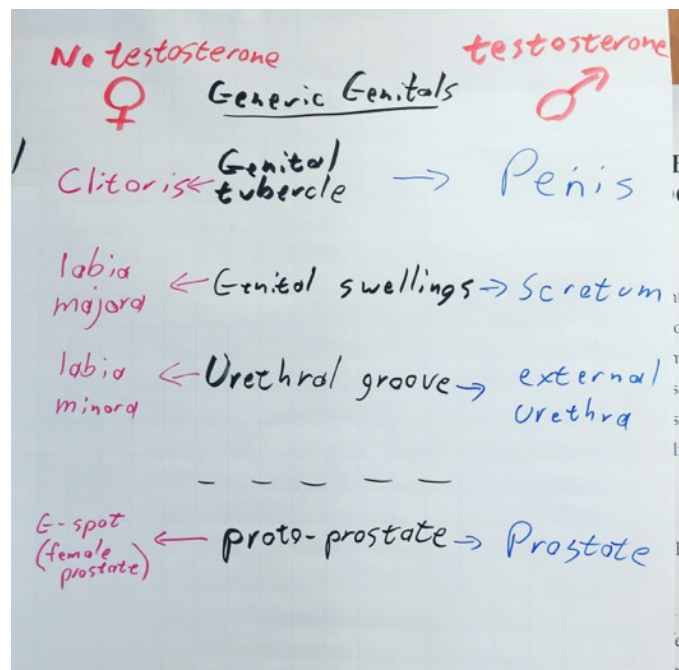 No testosterone
testosterone
♀
Generic Genitals
♂
Clitoris ← Genital tubercle → Penis
labia majora ← Genital swellings → Scrotum
labia minora ← Urethral groove → external urethra
— — — — —
G-spot (female prostate) ← proto-prostate → Prostate